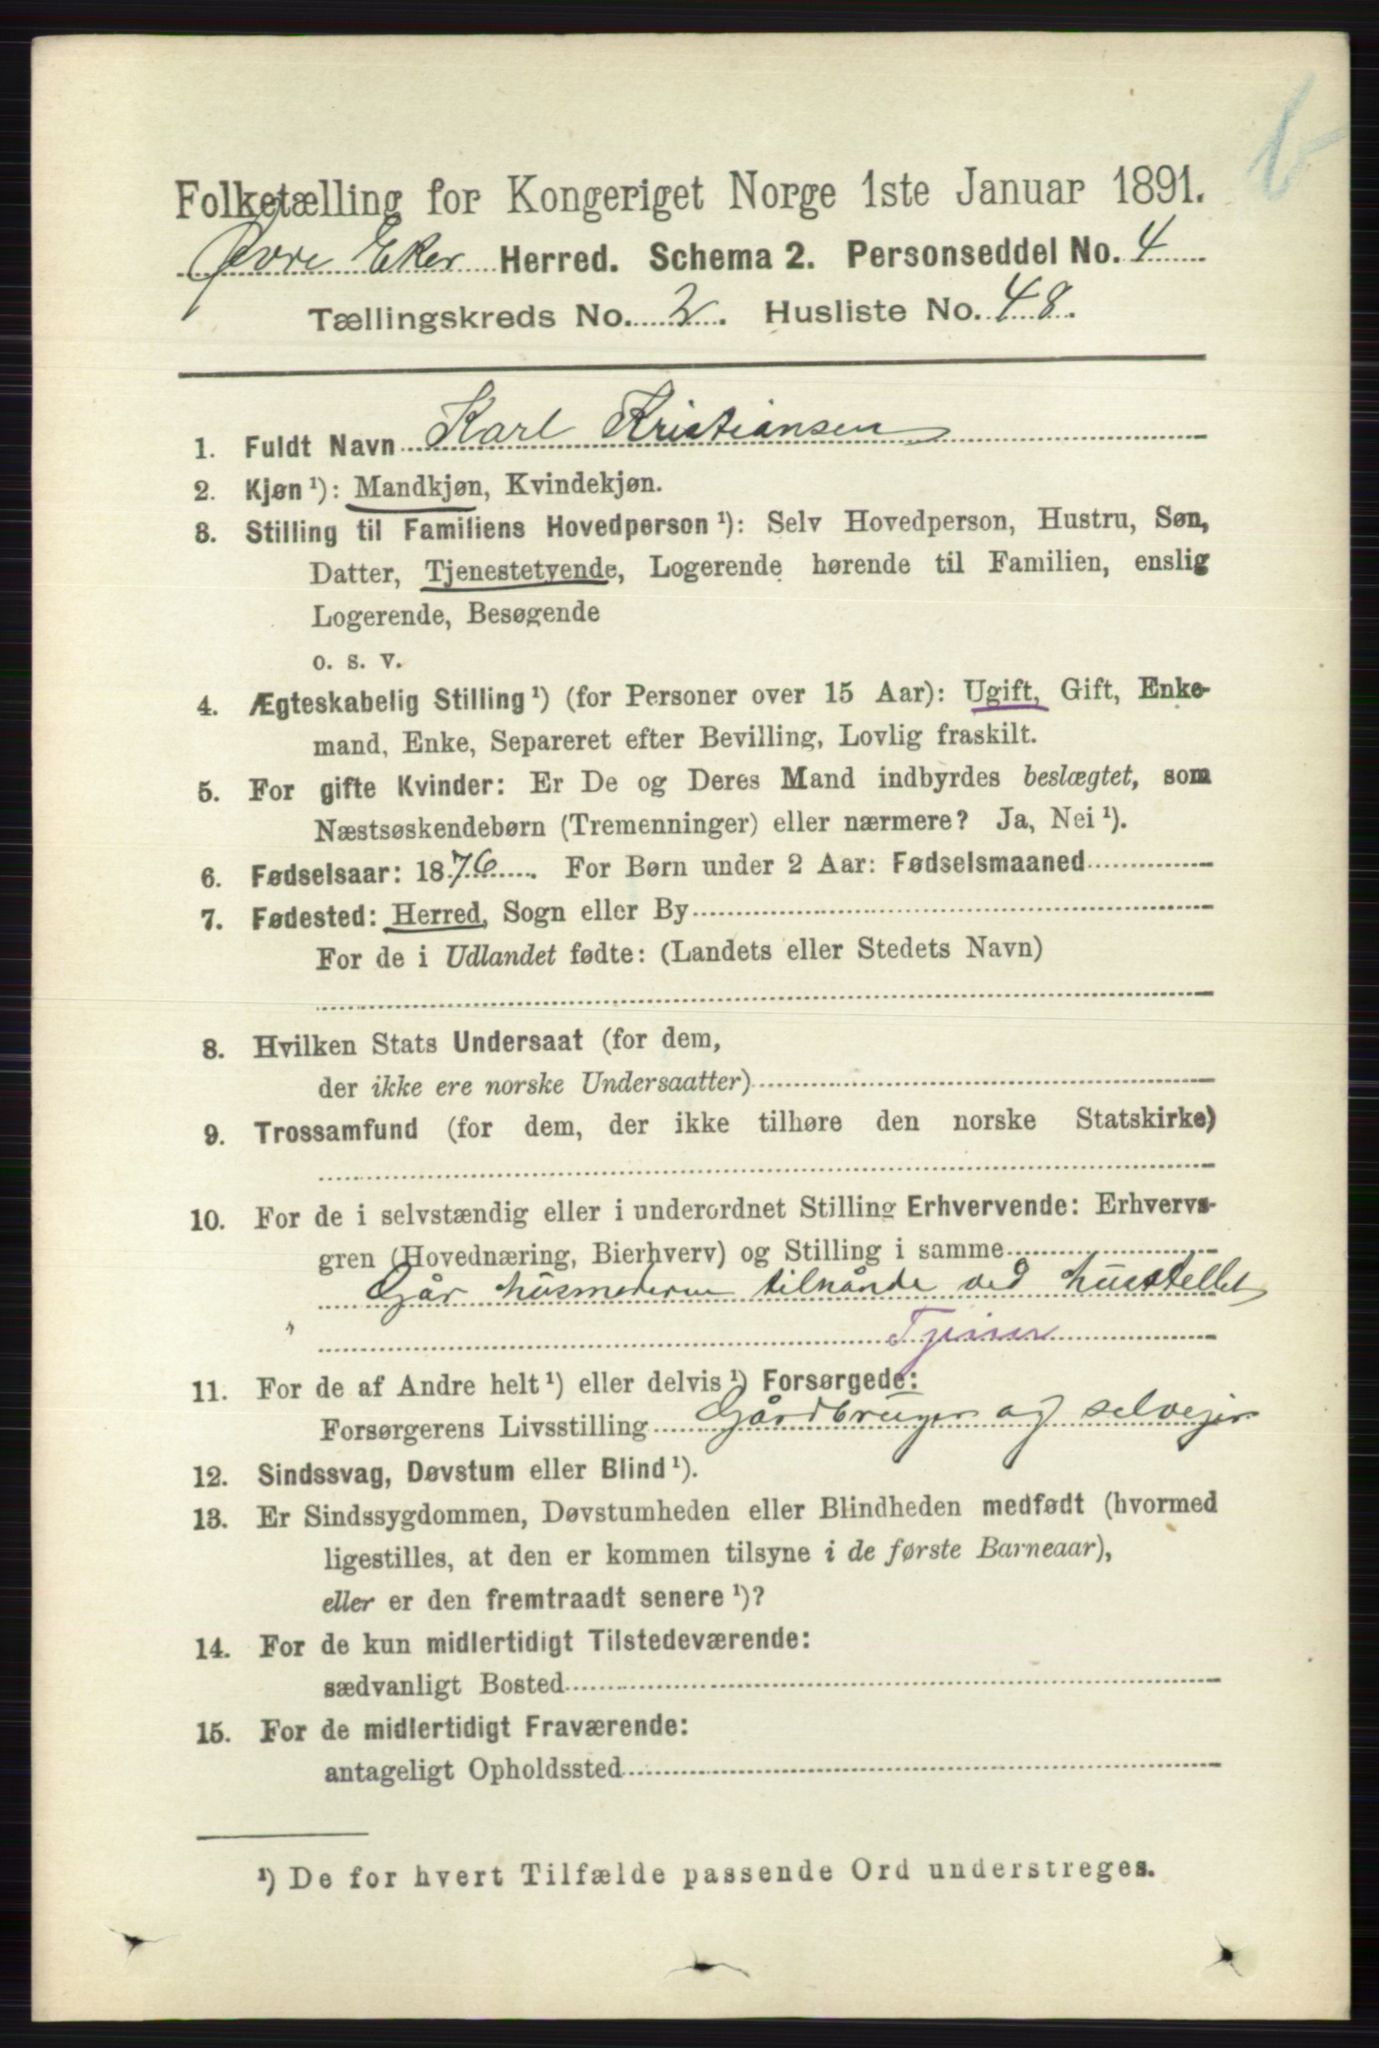 Folketælling for Kongeriget Norge 1ste Januar 1891.
Øvre Eker Herred. Schema 2. Personseddel No. 4
Tællingskreds No. 2. Husliste No. 48.
1. Fuldt Navn Karl Kristiansen
2. Kjøn¹): Mandkjøn, Kvindekjøn.
3. Stilling til Familiens Hovedperson¹): Selv Hovedperson, Hustru, Søn,
Datter, Tjenestetyende, Logerende hørende til Familien, enslig
Logerende, Besøgende
o. s. v.
4. Ægteskabelig Stilling¹) (for Personer over 15 Aar): Ugift, Gift, Enke-
mand, Enke, Separeret efter Bevilling, Lovlig fraskilt.
5. For gifte Kvinder: Er De og Deres Mand indbyrdes beslægtet, som
Næstsøskendebørn (Tremenninger) eller nærmere? Ja, Nei¹).
6. Fødselsaar: 1876. For Børn under 2 Aar: Fødselsmaaned
7. Fødested: Herred, Sogn eller By
For de i Udlandet fødte: (Landets eller Stedets Navn)
8. Hvilken Stats Undersaat (for dem,
der ikke ere norske Undersaatter)
9. Trossamfund (for dem, der ikke tilhøre den norske Statskirke)
10. For de i selvstændig eller i underordnet Stilling Erhvervende: Erhvervs-
gren (Hovednæring, Bierhverv) og Stilling i samme
Går husmoderen tilhånde ved husstellet
Tjener
11. For de af Andre helt¹) eller delvis¹) Forsørgede:
Forsørgerens Livsstilling Gårdbruger og selvejer
12. Sindssvag, Døvstum eller Blind¹).
13. Er Sindssygdommen, Døvstumheden eller Blindheden medfødt (hvormed
ligestilles, at den er kommen tilsyne i de første Barneaar),
eller er den fremtraadt senere¹)?
14. For de kun midlertidigt Tilstedeværende:
sædvanligt Bosted
15. For de midlertidigt Fraværende:
antageligt Opholdssted
¹) De for hvert Tilfælde passende Ord understreges.